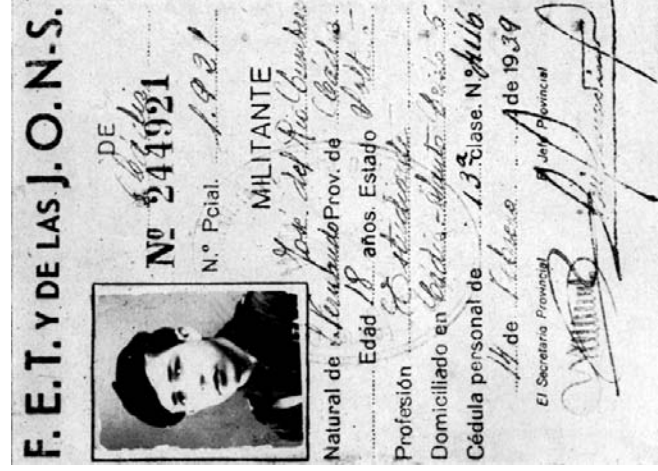 F. E. T. Y DE LAS J. O. N-S.
DE
Cádiz
Nº 244921
N.º Pcial. 1.921
MILITANTE
José del Rio
Natural de Prov. de Cádiz
Edad 18 años. Estado Solt
Profesión Estudiante
Domiciliado en Cádiz - 5
Cédula personal de 13ª clase. Nº
14 de Febrero de 1939
El Secretario Provincial El Jefe Provincial